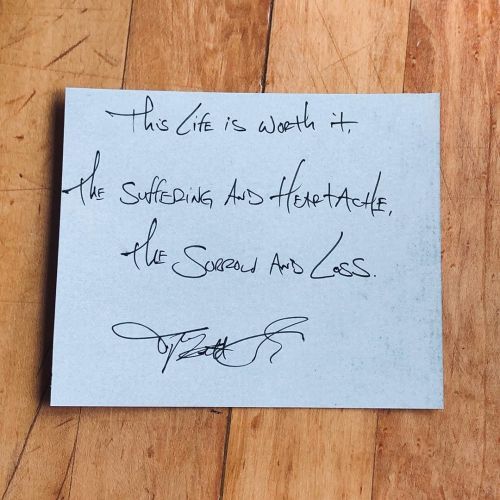 This Life is worth it,
the suffering and Heartache,
the Sorrow and Loss.